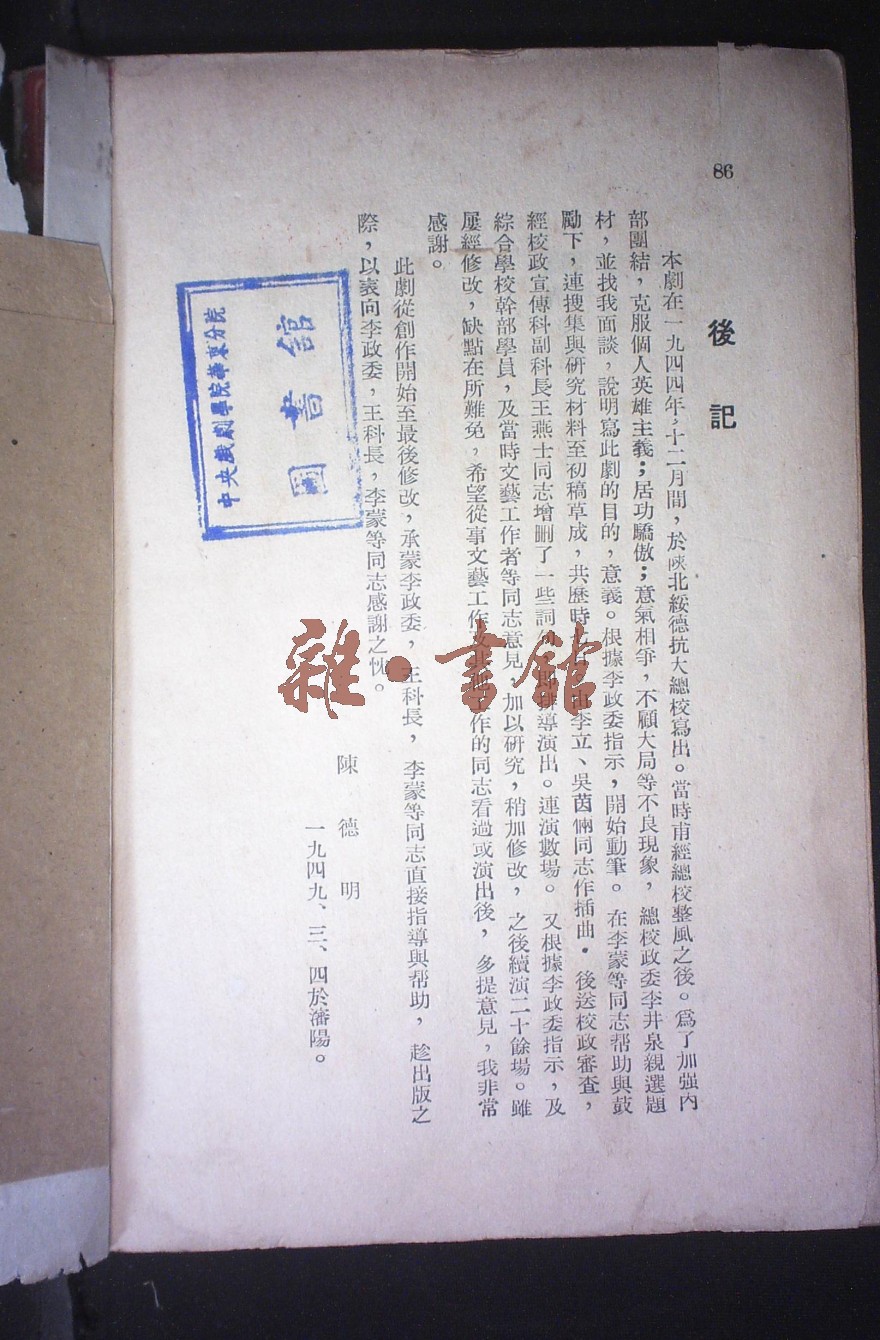 86
後記
本劇在一九四四年,十二月間,於陝北綏德抗大總校寫出。當時甫經總校整風之後。爲了加强內
部團結,克服個人英雄主義;居功驕傲;意氣相爭,不顧大局等不良現象,總校政委李井泉親選題
材,並找我面談,說明寫此劇的目的,意義。根據李政委指示,開始動筆。在李蒙等同志帮助與鼓
勵下,連搜集與研究材料至初稿草成,共歷時 李立、吳茵倆同志作插曲. 後送校政審查,
經校政宣傳科副科長王燕士同志增删了一些詞 排導演出。連演數場。又根據李政委指示,及
綜合學校幹部學員,及當時文藝工作者等同志意見,加以研究,稍加修改,之後續演二十餘場。雖
屢經修改,缺點在所難免,希望從事文藝工作 工作的同志看過或演出後,多提意見,我非常
感謝。
此劇從創作開始至最後修改,承蒙李政委,王科長,李蒙等同志直接指導與帮助,趁出版之
際,以表向李政委,王科長,李蒙等同志感謝之忱。
陳德明
一九四九、三、四於瀋陽。
中央戲劇學院華東分院
圖書館
雜·書館